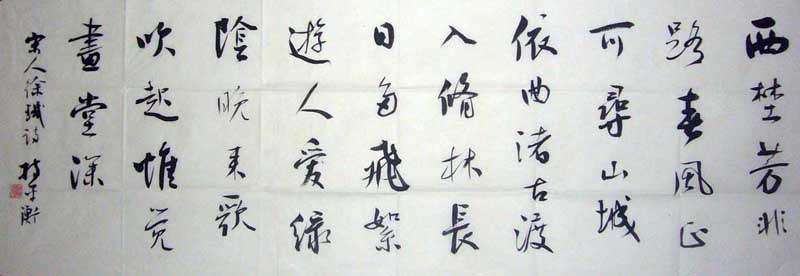 西埜芳菲
路春風正
可尋山城
依曲渚古渡
入脩林長
日多飛絮
遊人愛綠
陰晚來歌
吹起惟覺
畫堂深
宋人徐璣詩